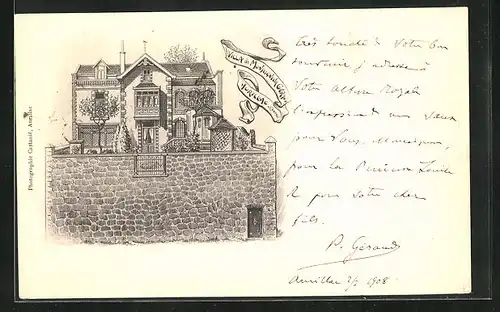 Photographie Cattanéï, Aurillac
très touché de votre bon
souvenir j'adresse à
Votre Altesse Royale
l'expression de mes vœux
pour Vous, Monseigneur,
pour la Princesse
& pour votre cher
fils.
P. Géraud
Aurillac 2/1 1908